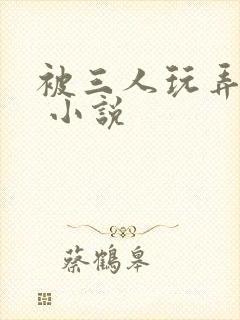 被三人玩弄
小説
蔡鶴皋